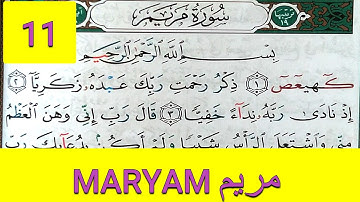 11
سُورَةُ مَرْيَمَ
بِسْمِ اللَّهِ الرَّحْمَٰنِ الرَّحِيمِ
كٓهيعٓصٓ ۝١ ذِكْرُ رَحْمَتِ رَبِّكَ عَبْدَهُۥ زَكَرِيَّآ ۝٢
إِذْ نَادَىٰ رَبَّهُۥ نِدَآءً خَفِيًّا ۝٣ قَالَ رَبِّ إِنِّى وَهَنَ ٱلْعَظْمُ
مِنِّى وَٱشْتَعَلَ ٱلرَّأْسُ شَيْبًا وَلَمْ أَكُنۢ بِدُعَآئِكَ رَبِّ
MARYAM مريم